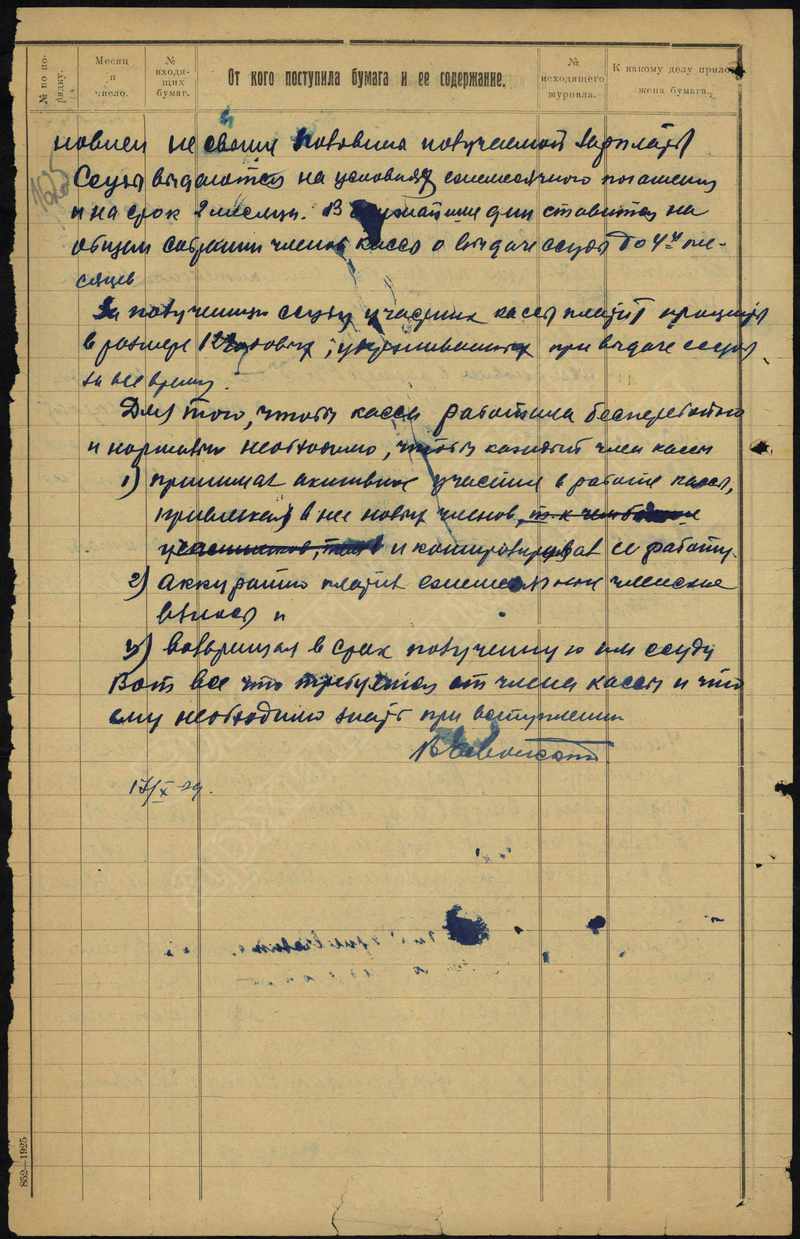 № по по-
рядку.
Месяц
и
число.
№
входя-
щих
бумаг.
От кого поступила бумага и ее содержание.
№
исходящего
журнала.
К какому делу прило-
жена бумага.
не свыше половины получаемой зарплаты
Ссуды выдаются на условиях ежемесячного погашения
и на срок 2 месяца. В ставится на
общем собрании членов кассы о выдаче ссуды до 4х ме-
сяцев
За полученную ссуду участник кассы платит проценты
в размере 12 годовых, удерживаемых при выдаче ссуды
за все время.
Для того, чтобы касса работала бесперебойно
и нормально необходимо, чтобы каждый член кассы
1) принимал активное участие в работе кассы,
привлекал в нее новых членов, т.к. чем больше
участников, тем и контролировал ее работу.
2) аккуратно платил ежемесячные членские
взносы и
3) возвращал в срок полученную им ссуду
Вот все что требуется от члена кассы и что
ему необходимо знать при вступлении
17/X 29.
852—1925